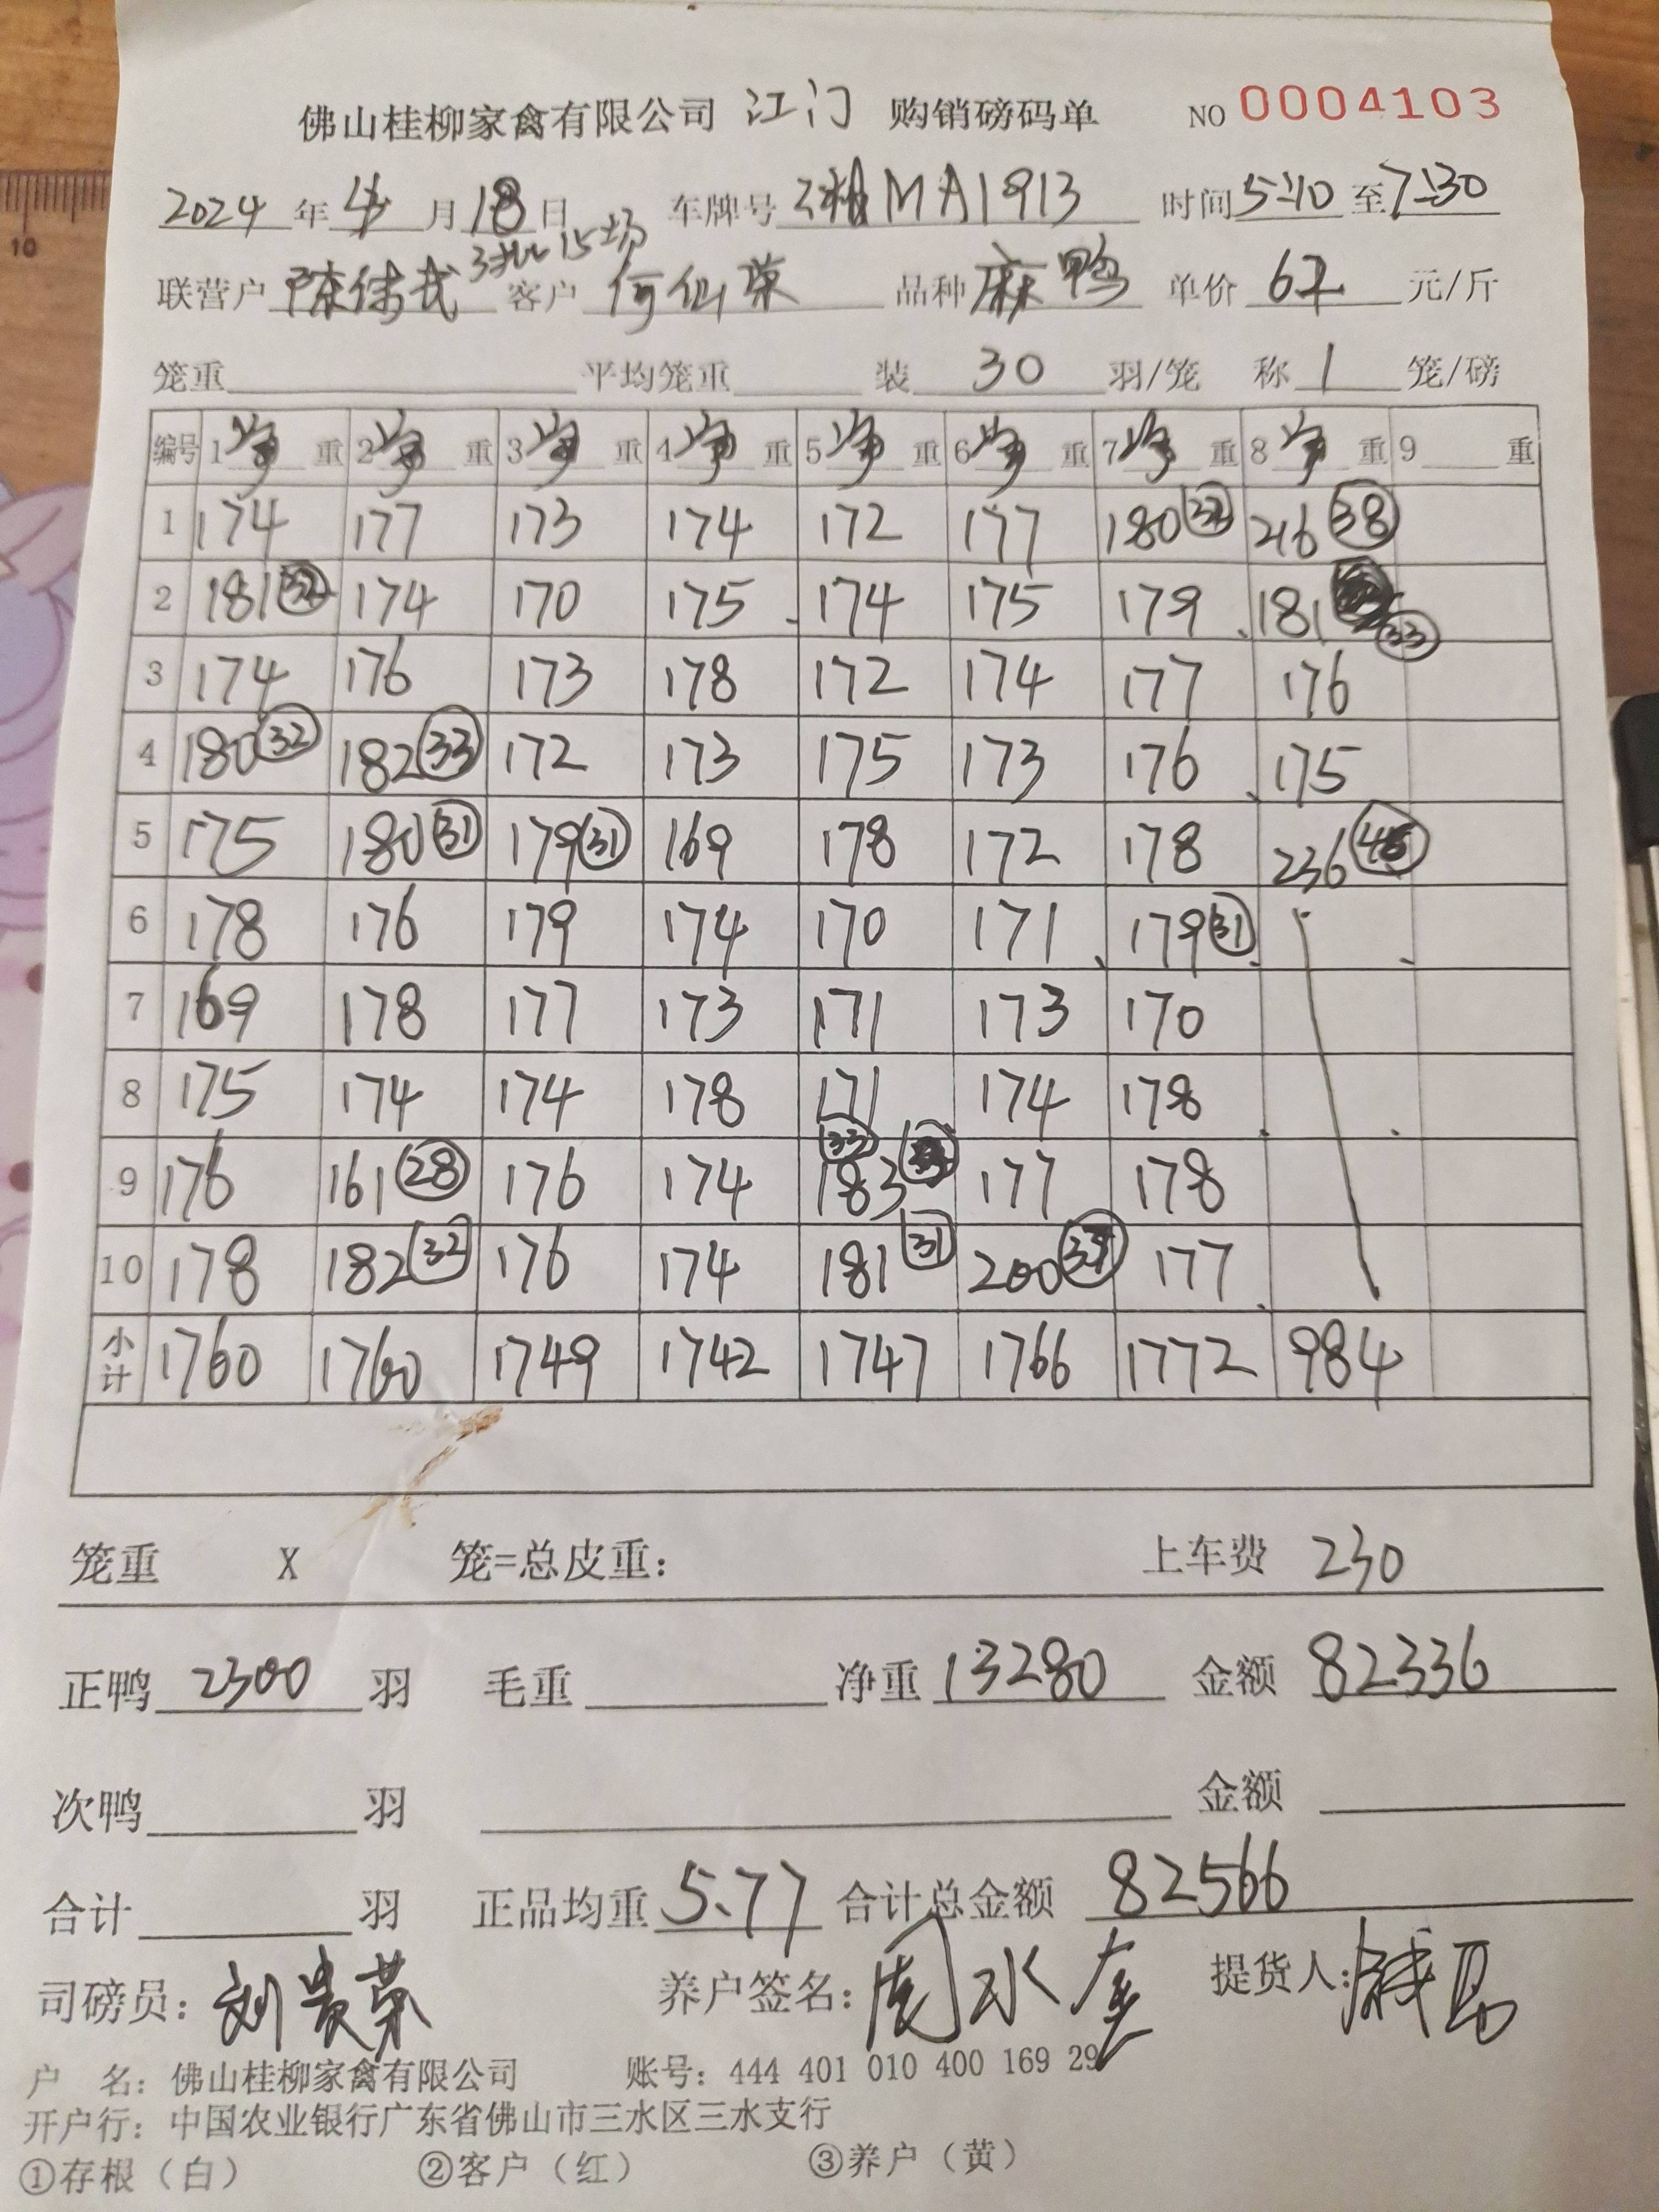 佛山桂柳家禽有限公司 江门 购销磅码单 NO 0004103
2024 年 4 月 18 日 车牌号 MA1913 时间 5:10 至 7:30
3批15场
联营户 陈 客户 何仙荣 品种 麻鸭 单价 6.2 元/斤
笼重 平均笼重 装 30 羽/笼 称 1 笼/磅
编号 1 净 重 2 净 重 3 净 重 4 净 重 5 净 重 6 净 重 7 净 重 8 净 重 9 重
1 174 177 173 174 172 177 180 32 216 38
2 181 32 174 170 175 174 175 179 181 33
3 174 176 173 178 172 174 177 176
4 180 32 182 33 172 173 175 173 176 175
5 175 180 31 179 31 169 178 172 178 236
6 178 176 179 174 170 171 179 31
7 169 178 177 173 171 173 170
8 175 174 174 178 171 174 178
9 176 161 28 176 174 183 33 177 178
10 178 182 32 176 174 181 31 200 177
小计 1760 1760 1749 1742 1747 1766 1772 984
笼重 X 笼=总皮重： 上车费 230
正鸭 2300 羽 毛重 净重 13280 金额 82336
次鸭 羽 金额
合计 羽 正品均重 5.77 合计总金额 82566
司磅员：刘贵荣 养户签名：周水 提货人：
户 名：佛山桂柳家禽有限公司 账号：444 401 010 400 169 29
开户行：中国农业银行广东省佛山市三水区三水支行
①存根（白） ②客户（红） ③养户（黄）